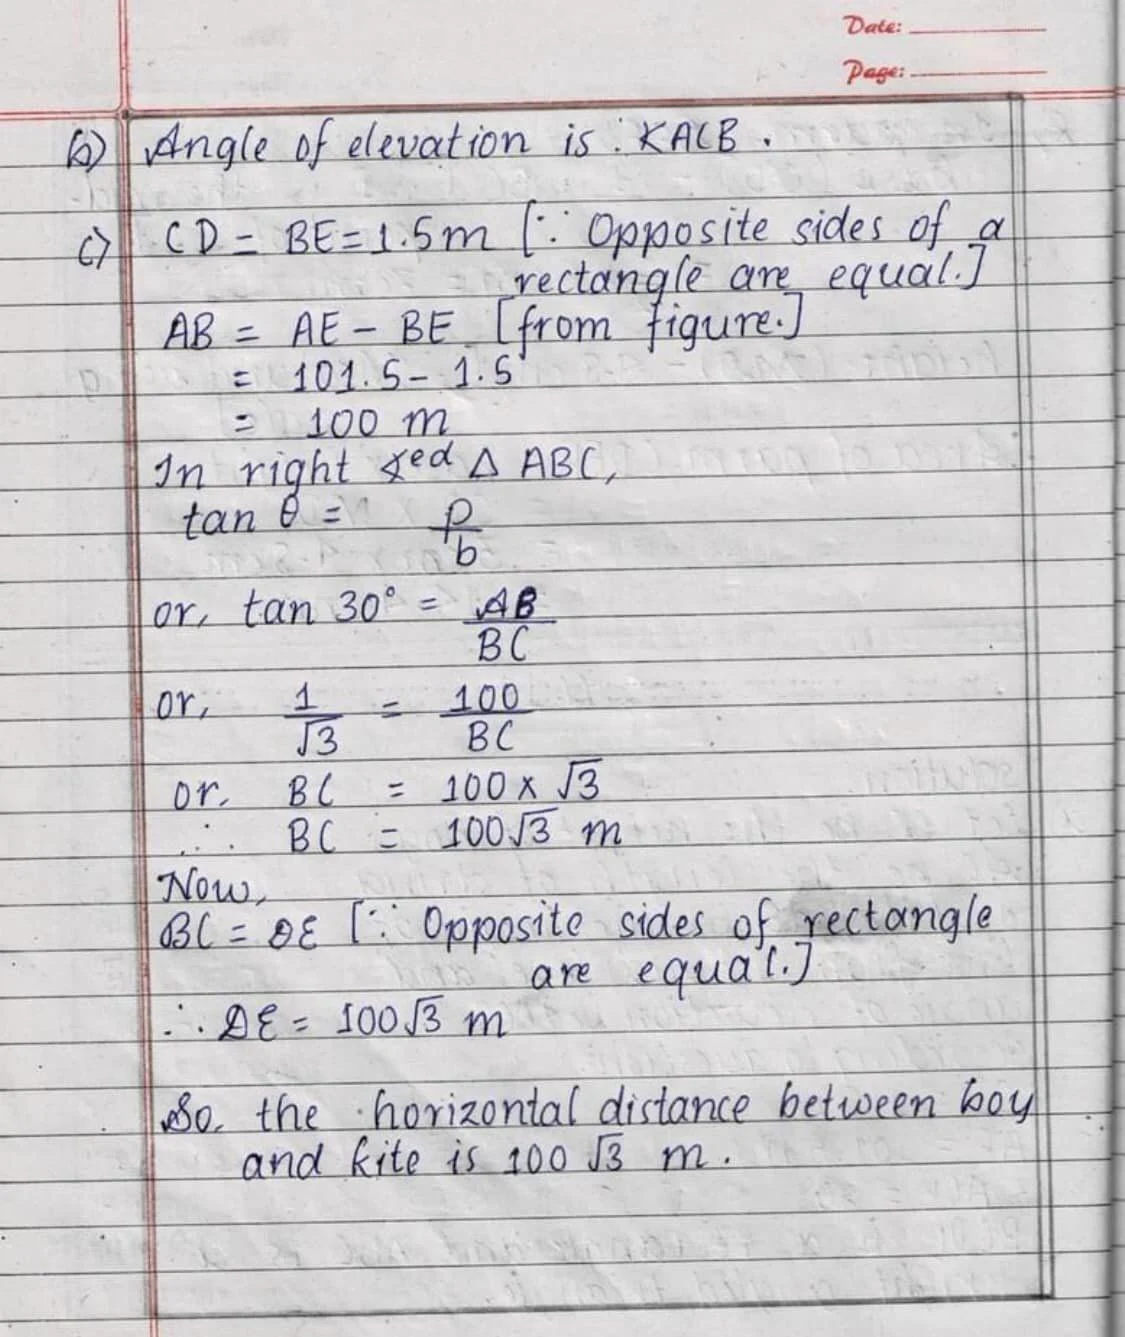 Date:
Page:
b) Angle of elevation is ∠ACB.
c) CD = BE = 1.5m [∵ Opposite sides of a
rectangle are equal.]
AB = AE - BE [from figure.]
= 101.5 - 1.5
= 100 m
In right ∡ed △ ABC,
tan θ = p/b
or, tan 30° = AB/BC
or, 1/√3 = 100/BC
or. BC = 100 x √3
∴ BC = 100√3 m
Now,
BC = DE [∵ Opposite sides of rectangle
are equal.]
∴ DE = 100√3 m
So, the horizontal distance between boy
and kite is 100 √3 m.